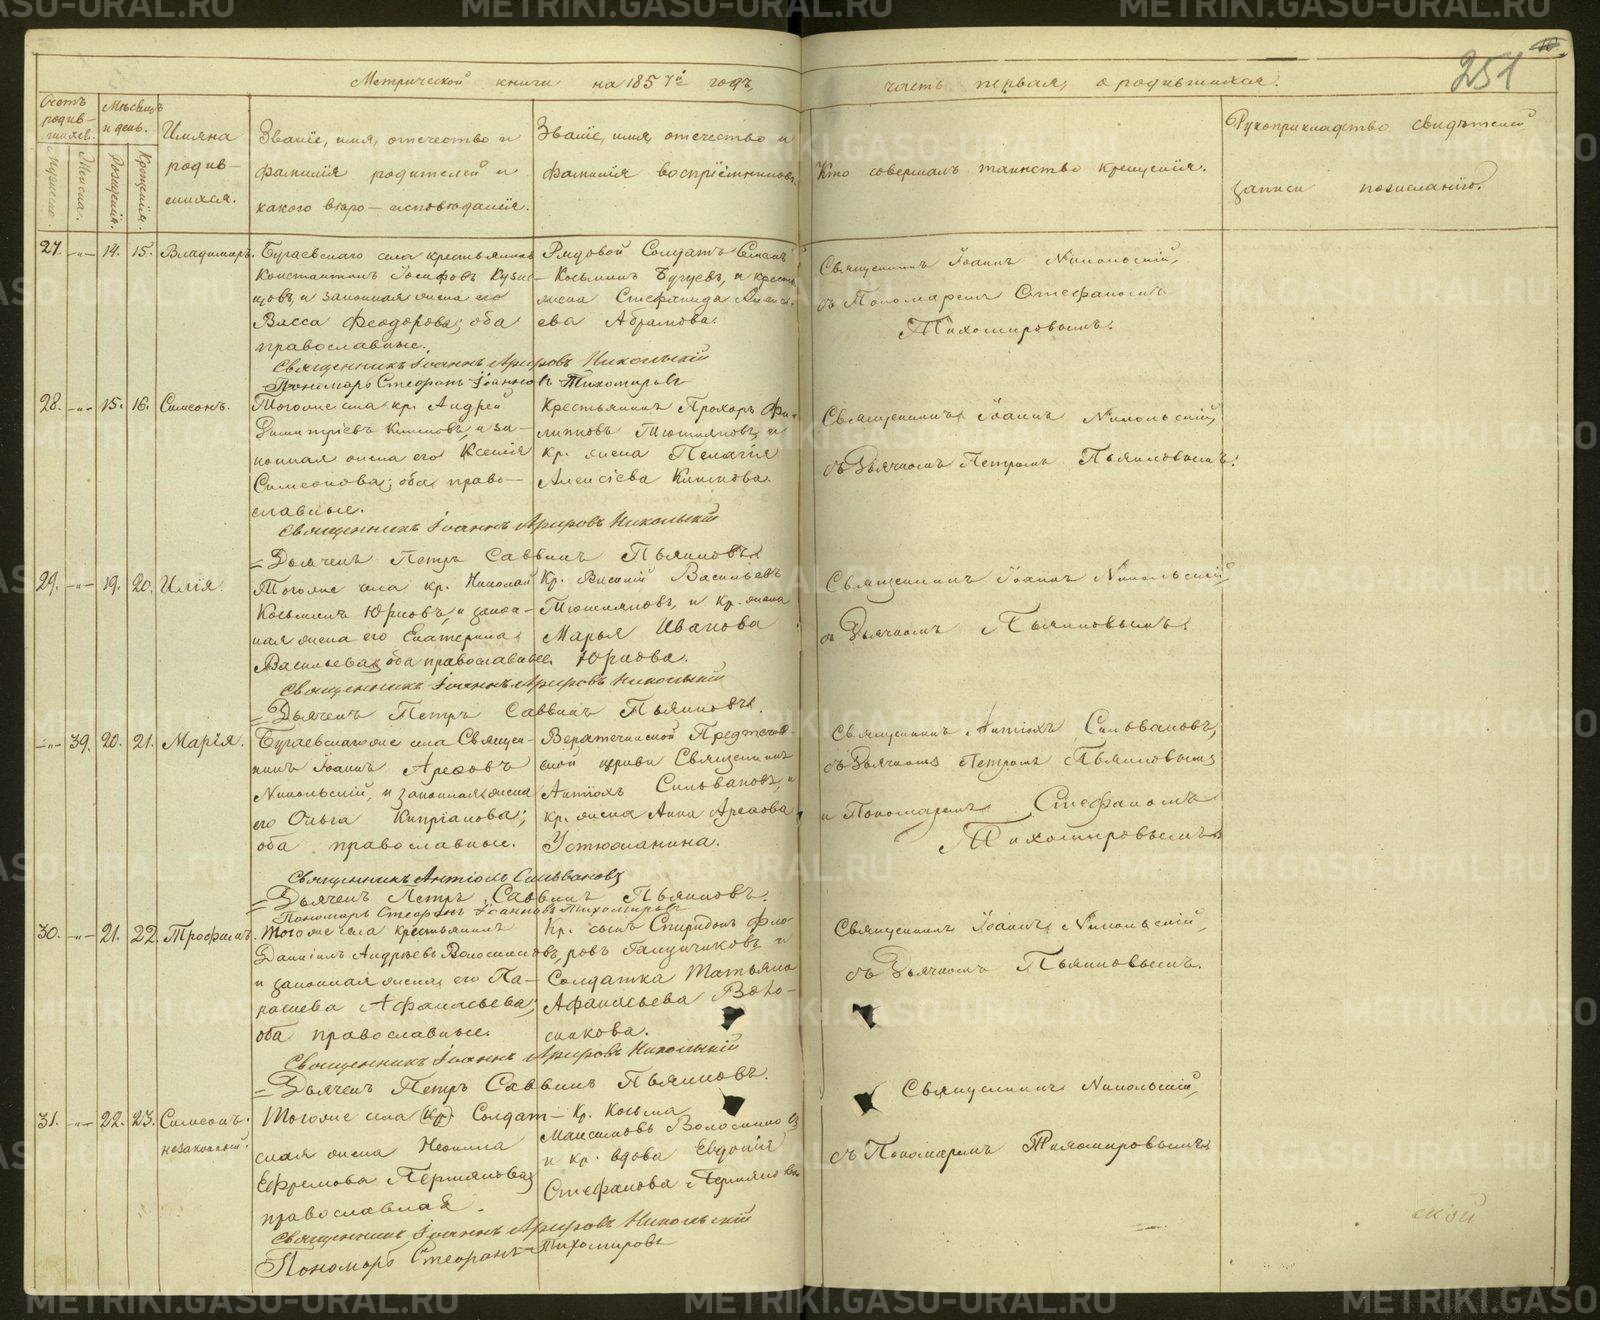 251
Метрической книги на 1857й годъ,
часть первая, о родившихся.
Счетъ родив-шихся.
Мѣсяцъ и день.
Мужеска.
Женска.
Рожденія.
Крещенія.
Имяна
родив-
шихся.
Званіе, имя, отечество и
фамилія родителей и
какого вѣро-исповѣданія.
Званіе, имя, отечество и
фамилія воспріемниковъ.
Кто совершалъ таинство крещенія.
Рукоприкладство свидѣтелей
записи по желанію.
27. -"- 14. 15. Владимиръ.
Бугаевскаго села крестьянинъ
Константинъ Іосифовъ Кузне-
цовъ, и законная жена его
Васса Феодорова; оба
православные.
Рядовой Солдатъ
Козьминъ и крест.
жена Стефанида Алексѣ-
ева Абрамова.
Священникъ Іоаннъ Никольскій,
съ Пономаремъ Стефаномъ
Тихомировымъ.
Священникъ Іоаннъ Арефовъ Никольскій
Пономарь Стефанъ Іоанновъ Тихомировъ
28. -"- 15. 16. Симеонъ.
Тогоже села кр. Андрей
Димитріевъ Климовъ, и за-
конная жена его Ксенія
Симеонова; оба право-
славные.
Крестьянинъ Прохоръ Фи-
липповъ и
кр. жена Пелагія
Алексіева Климова.
Священникъ Іоаннъ Никольскій,
съ Дьячкомъ Петромъ Пьянковымъ.
Священникъ Іоаннъ Арефовъ Никольскій
=Дьячекъ Петръ Саввинъ Пьянковъ.
29. -"- 19. 20. Илія.
Тогоже села кр. Николай
Козьминъ Юрковъ, и закон-
ная жена его Екатерина
Васильева; оба православные.
Кр. Василій Васильевъ
и кр. жена
Марья Иванова
Юркова.
Священникъ Іоаннъ Никольскій,
съ Дьячкомъ Пьянковымъ.
Священникъ Іоаннъ Арефовъ Никольскій
=Дьячекъ Петръ Саввинъ Пьянковъ.
-"- 39. 20. 21. Марія.
Бугаевскагоже села Священ-
никъ Іоаннъ Арефовъ
Никольскій, и законная жена
его Ольга Кипріанова;
оба православные.
Предтечев-
ской церкви Священникъ
Антіохъ Сильвановъ, и
кр. жена Анна Арефова
Устюжанина.
Священникъ Антіохъ Сильвановъ,
съ Дьячкомъ Петромъ Пьянковымъ
и Пономаремъ Стефаномъ
Тихомировымъ.
Священникъ Антіохъ Сильвановъ
=Дьячекъ Петръ Саввинъ Пьянковъ.
Пономарь Стефанъ Іоанновъ Тихомировъ
30. -"- 21. 22. Трофимъ.
Тогоже села крестьянинъ
Даніилъ Андреевъ Волосниковъ,
и законная жена его Па-
раскева Афанасьева;
оба православные.
Кр. сынъ Спиридонъ Фло-
ровъ и
Солдатка Татьяна
Афанасьева Воло-
сникова.
Священникъ Іоаннъ Никольскій,
съ Дьячкомъ Пьянковымъ.
Священникъ Іоаннъ Арефовъ Никольскій
=Дьячекъ Петръ Саввинъ Пьянковъ.
31. -"- 22. 23. Симеонъ.
незаконный.
Тогоже села (кр) Солдат-
ская жена Неонила
Ефремова Пермякова,
православная.
Кр. Козьма
Максимовъ Волосниковъ
и кр. вдова Евдокія
Стефанова Пермякова.
Священникъ Никольскій,
съ Пономаремъ Тихомировымъ.
Священникъ Іоаннъ Арефовъ Никольскій
Пономарь Стефанъ Тихомировъ
ской
METRIKI.GASO-URAL.RU